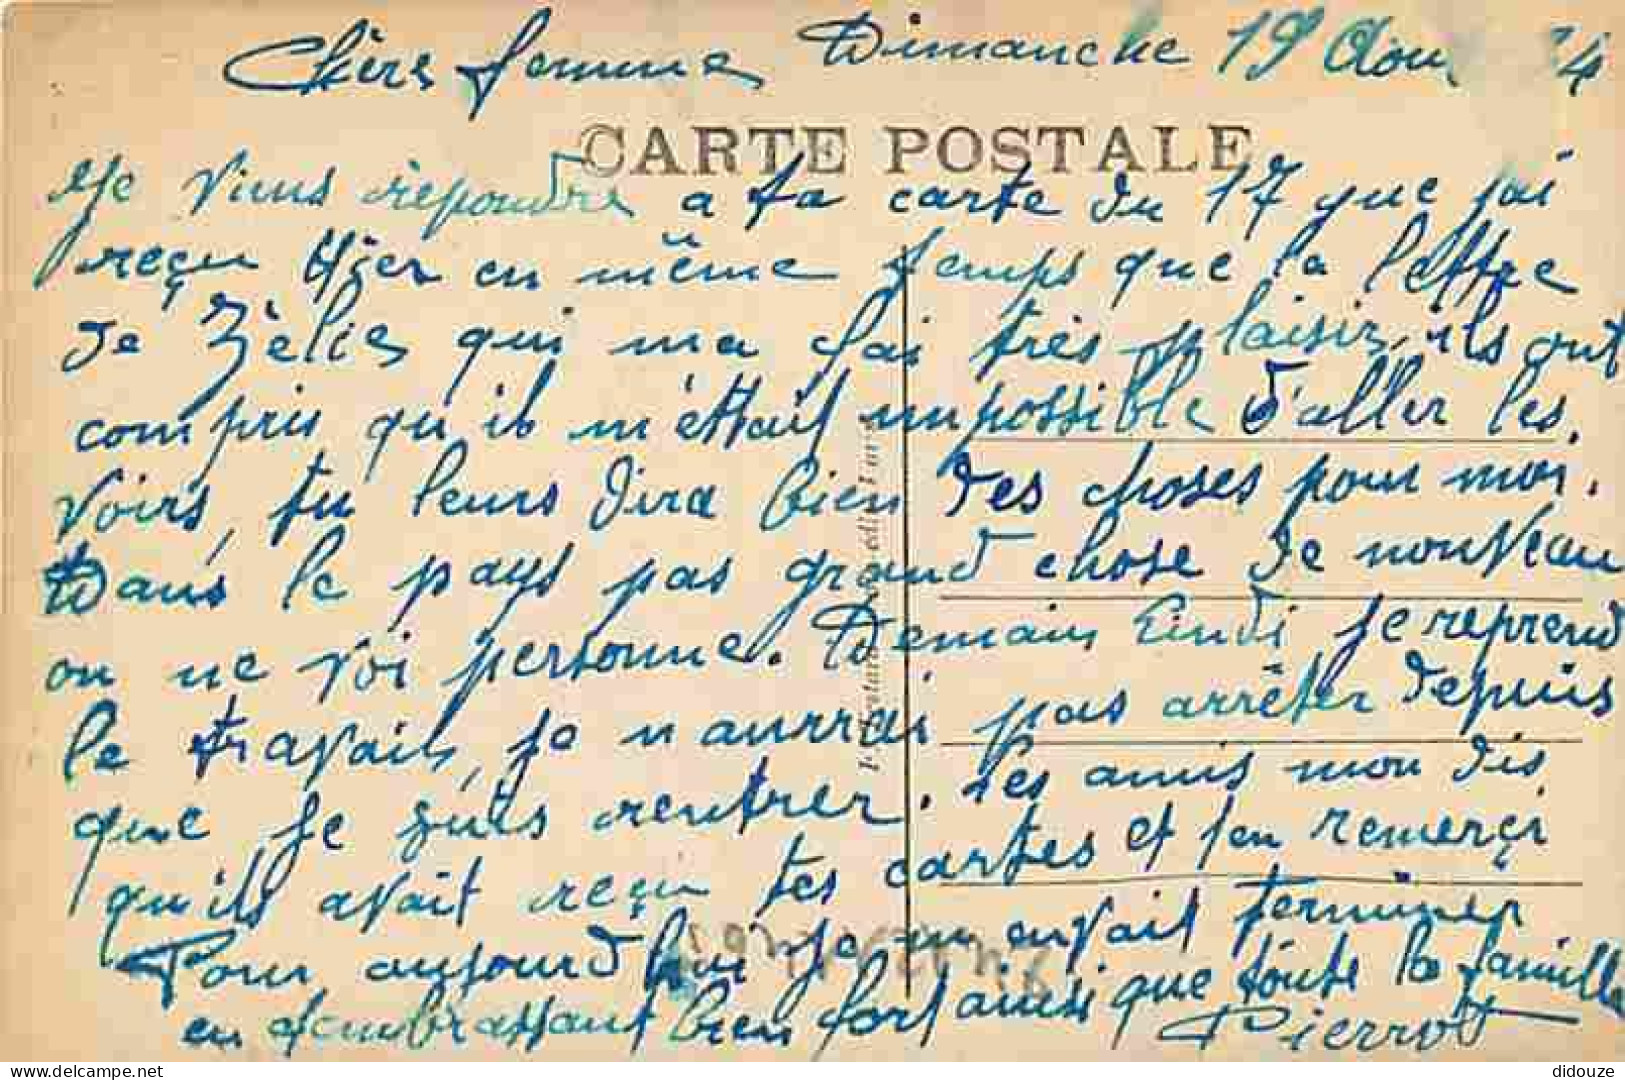 Chère femme Dimanche 19 Aou 4
CARTE POSTALE
Je viens répondre a ta carte du 17 que jai
reçu Hier en même temps que la lettre
de Zèlie qui ma fai très plaisir, ils ont
compris qu'il m'éttait impossible d'aller les
voirs, tu leurs dira bien des choses pour moi.
Dans le pays pas grand chose de nouveau
on ne voi personne. Demain Lundi je reprend
le travail, je n'aurrai pas arrêter depuis
que je suis rentrer. Les amis mon dis
qu'ils avait reçu tes cartes et t'en remerçi
Pour aujourd'hui je m'envait terminer
en t'embrassant bien fort ainsi que toute la famille
Pierrot
didouze